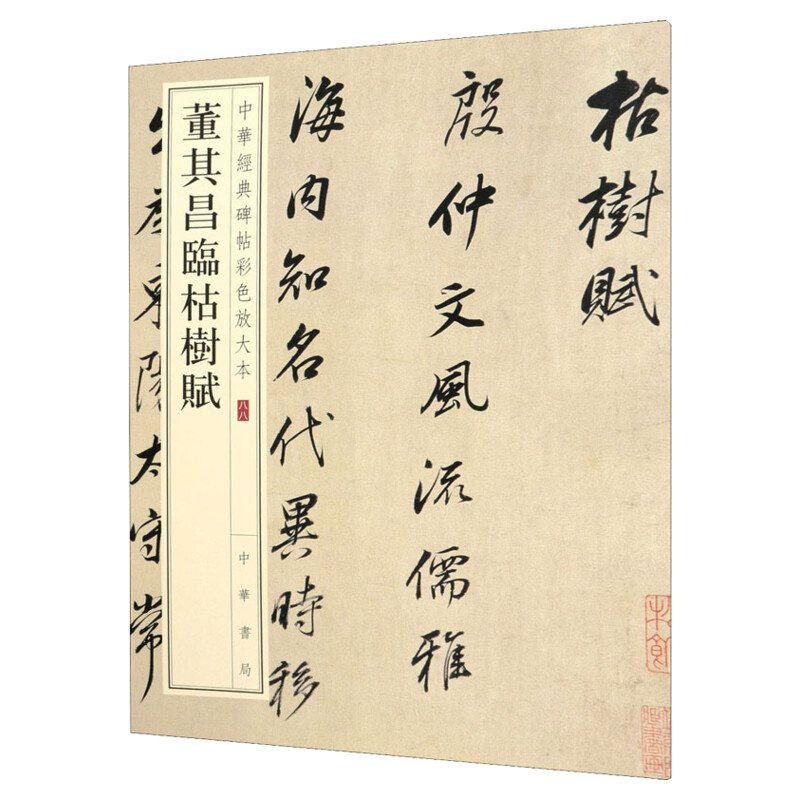 枯樹賦
殷仲文風流儒雅
海內知名代異時移
出為東陽太守常
中華經典碑帖彩色放大本
八八
中華書局
董其昌臨枯樹賦